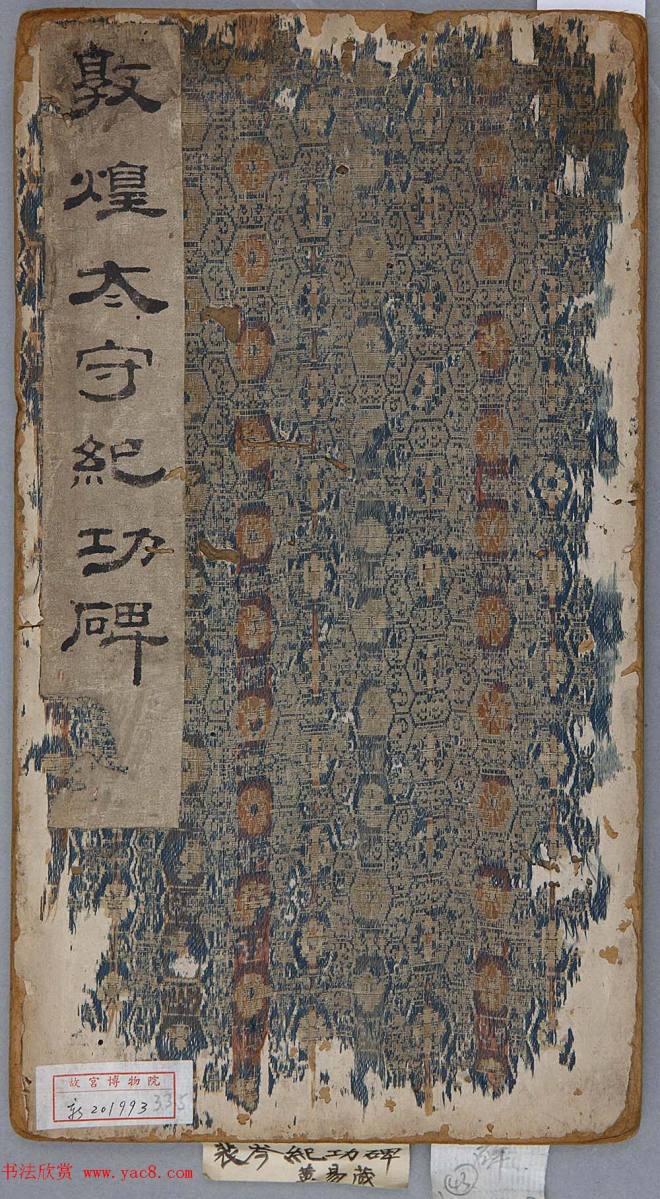 敦煌太守紀功碑
故宮博物院
新201993
335
裴岑紀功碑
黄易藏
43
书法欣赏 www.yac8.com